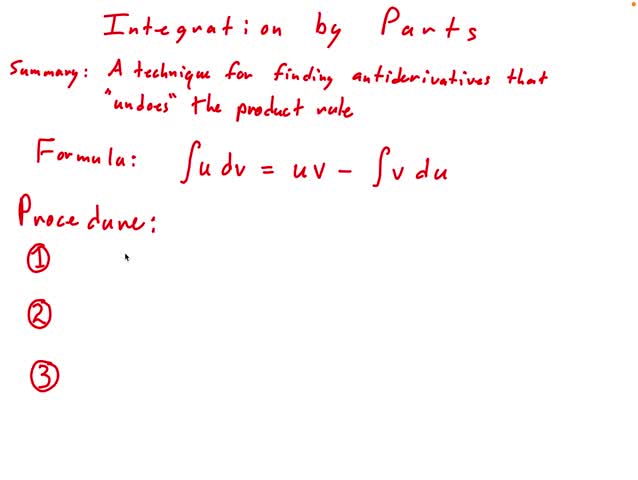 Integration by Parts
Summary: A technique for finding antiderivatives that
"undoes" the product rule
Formula: ∫u dv = uv - ∫v du
Procedure:
①
②
③